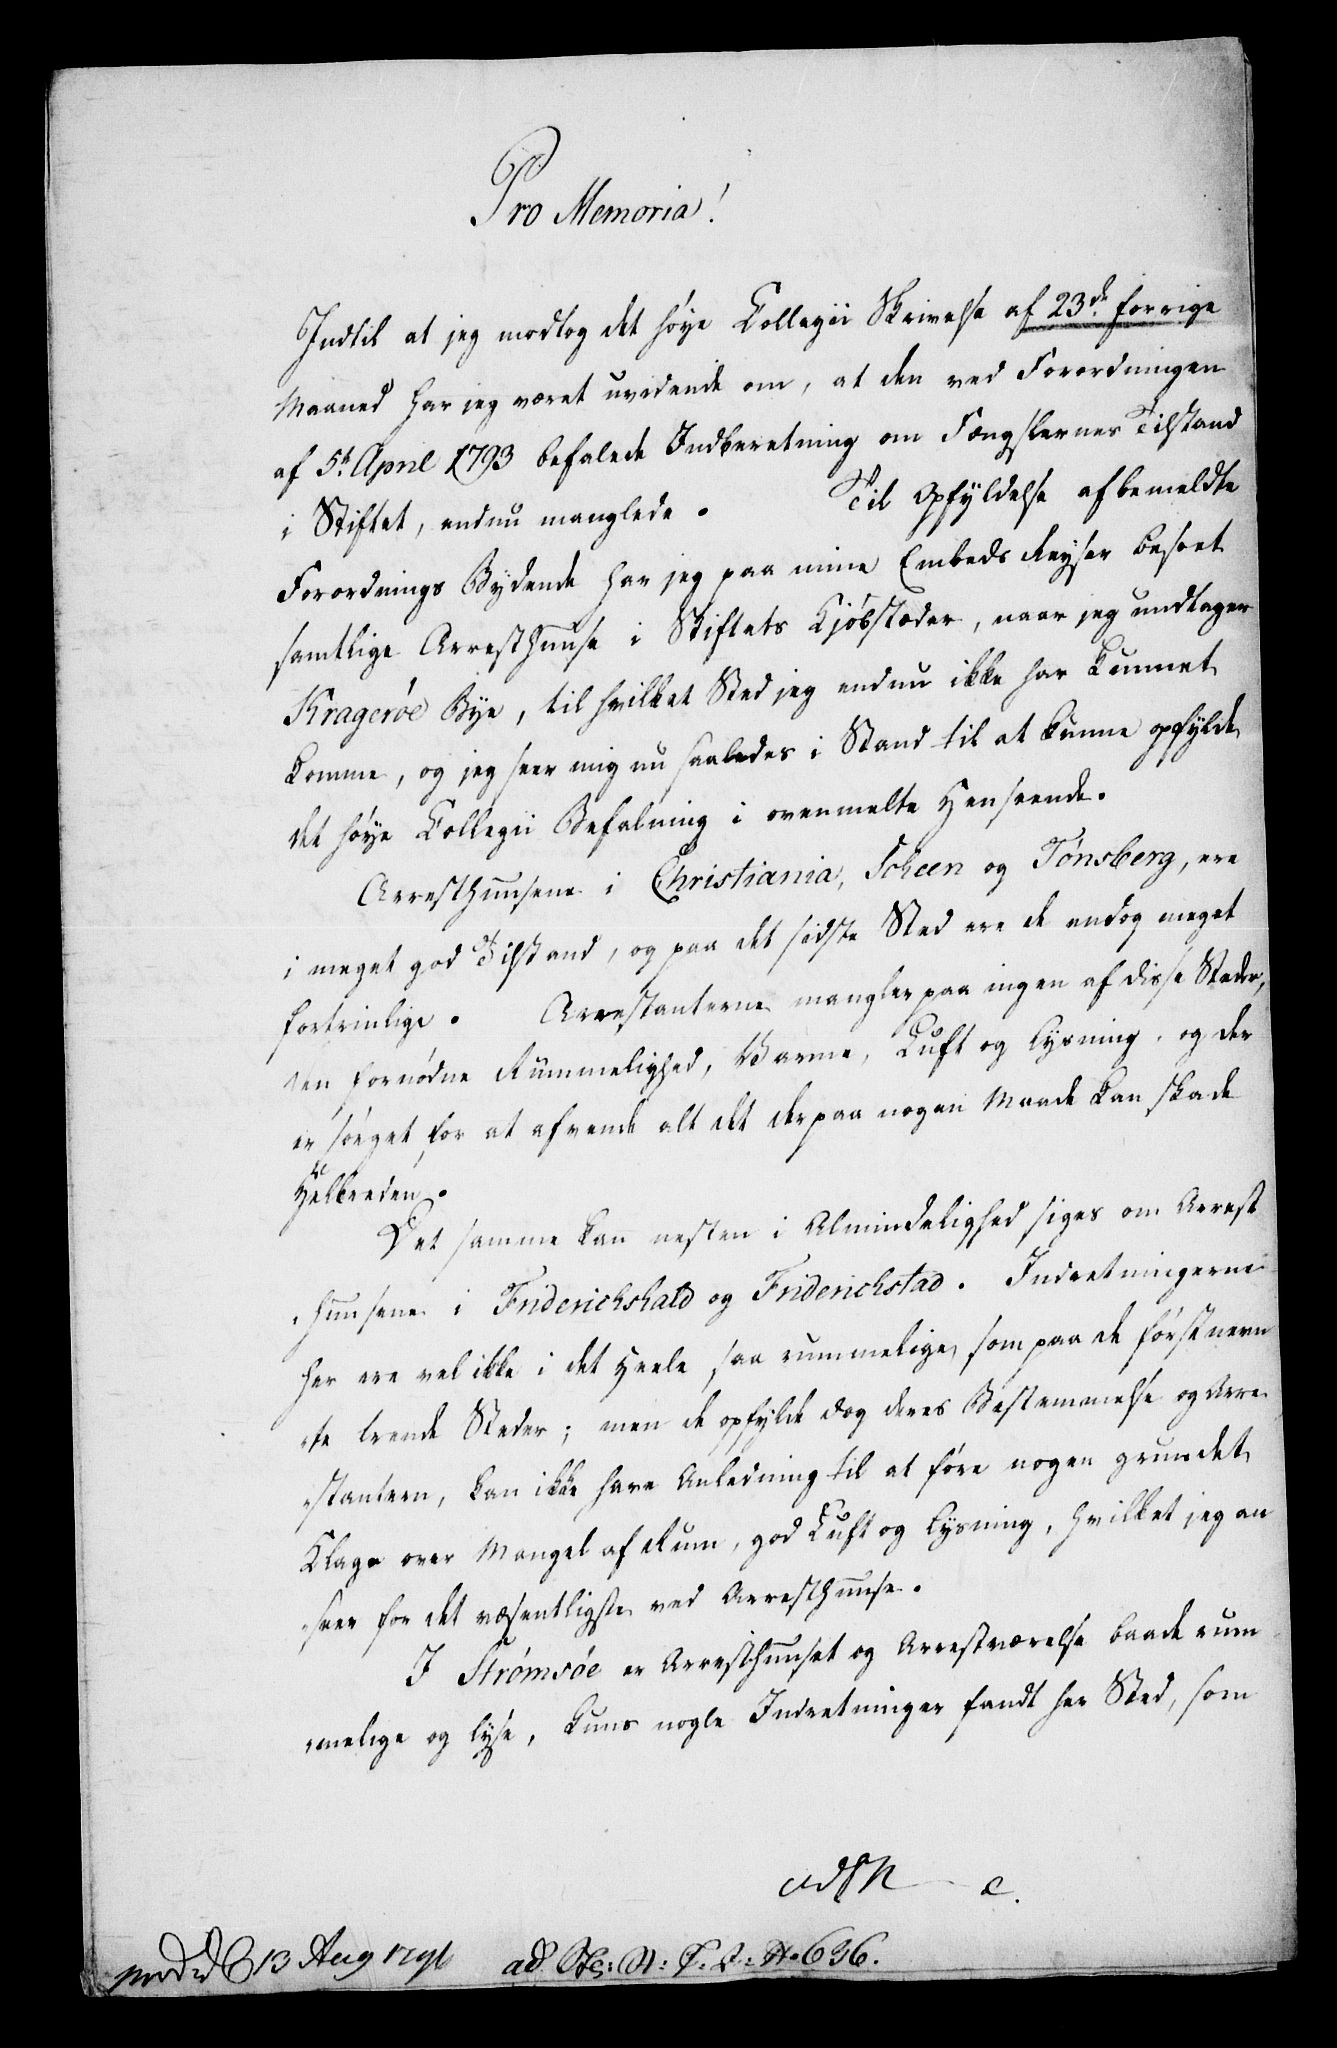 Pro Memoria!
Indtil at jeg modtog det høye Collegii Skrivelse af 23de forrige
Maaned har jeg været uvidende om, at den ved Forordningen
af 5te April 1793 befalede Indberetning om Fængslernes Tilstand
i Stiftet, endnu manglede. Til Opfyldelse af bemeldte
Forordnings Bydende har jeg paa mine Embeds Reyser besøet
samtlige Arresthuuse i Stiftets Kjøbstæder, naar jeg undtager
Kragerøe Bye, til hvilket Sted jeg endnu ikke har kunnet
komme, og jeg seer mig nu saaledes i Stand til at kunne opfylde
det høye Collegii Befalning i ovenmelte Henseende.
Arresthuusene i Christiania, Scheen og Tønsberg, ere
i meget god Tilstand, og paa det sidste Sted ere de endog meget
fortrinlige. Arrestanterne mangler paa ingen af disse Steder,
den fornødne Rummelighed, Varme, Luft og Lysning, og der
er sørget for at afvende alt det der paa nogen Maade kan skade
Helbreden.
Det samme kan nesten i Almindelighed siges om Arrest
huusene i Friderichshald og Friderichstad. Indretningerne
her ere vel ikke i det Heele saa rummelige, som paa de først nevn
te trende Steder; men de opfylde dog deres Bestemmelse og Arre
stantern, kan ikke have Anledning til at føre nogen grundet
Klage over Mangel af Rum, god Luft og Lysning, hvilket jeg an
seer for det væsentligste ved Arresthuuse.
I Strømsøe er Arresthuuset og Arrestværelse baade rum
melige og lyse, kuns nogle Indretninger fandt her Sted, som
13 Aug 1796 ad No 636.